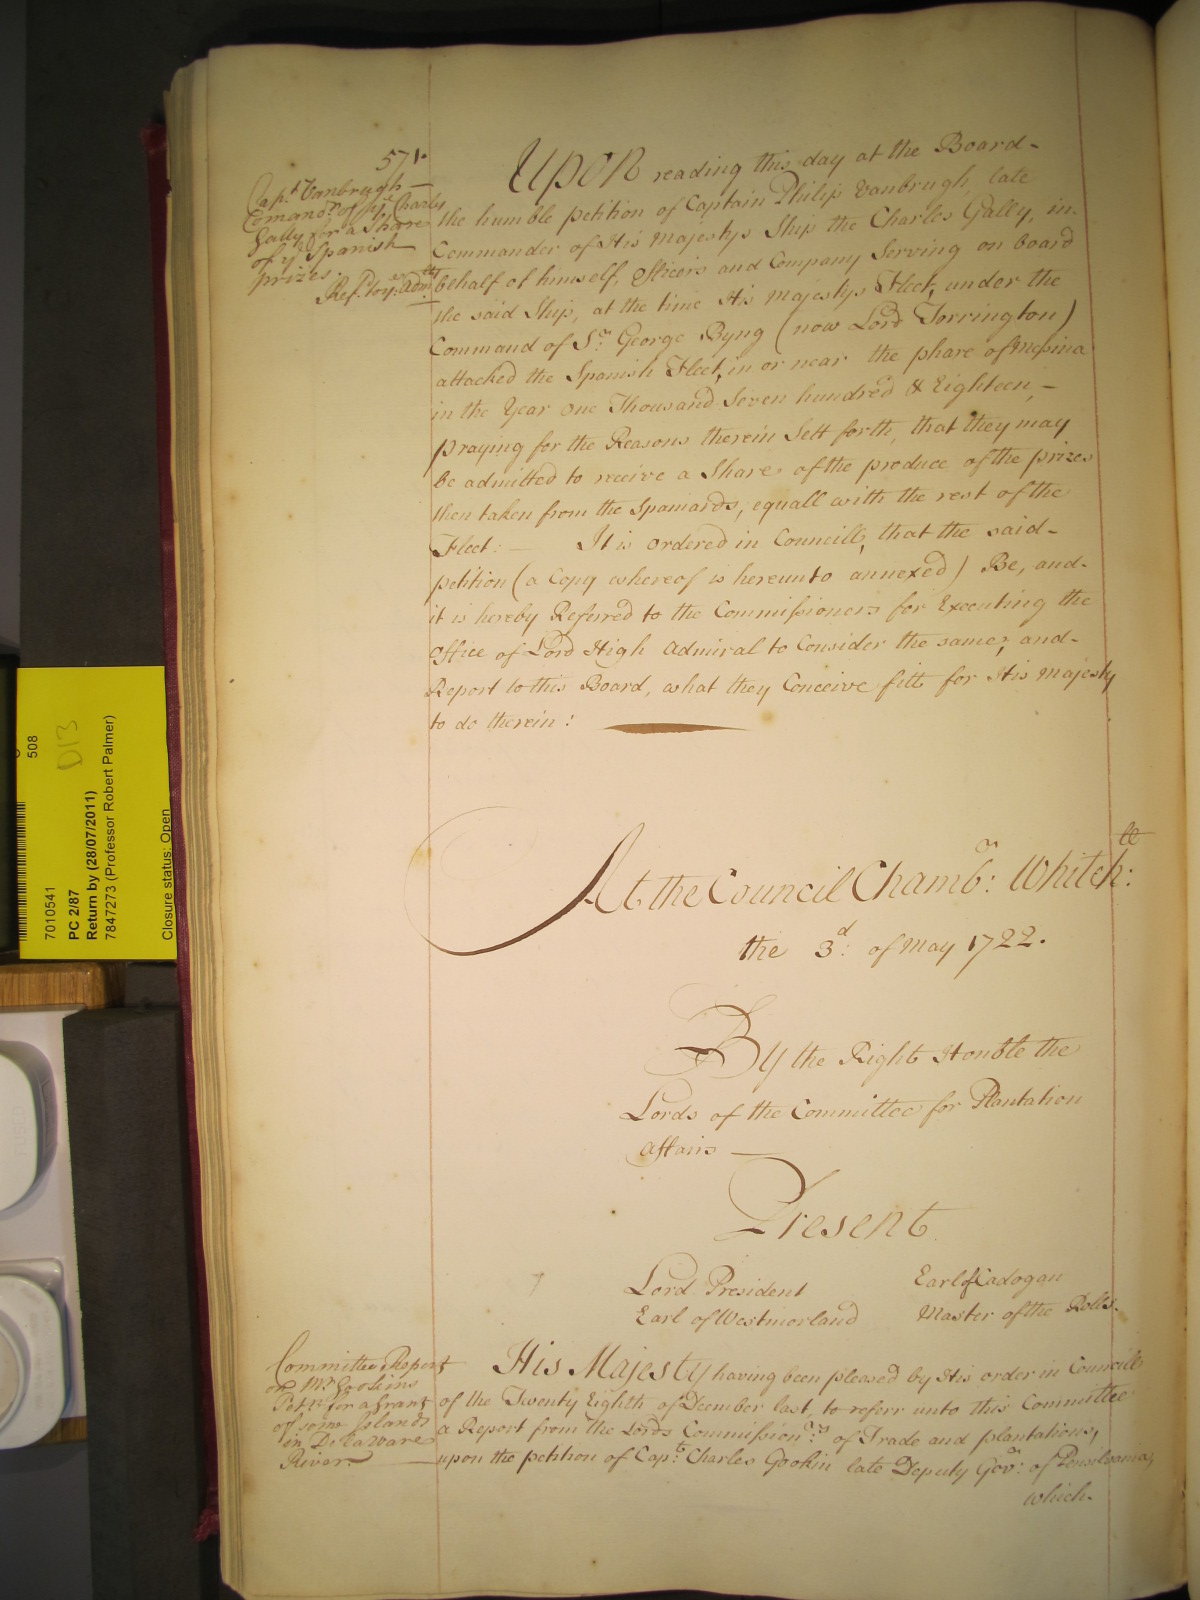 571.
Capt. Vanbrugh —
Comandr. of ye. Charles
Gally for a Share
of ye Spanish
prizes.
Ref. to ye. Admty
UPON reading this day at the Board-
the humble petition of Captain Philip Vanbrugh, late
Commander of His Majestys Ship the Charles Gally, in-
behalf of himself, Officers and Company Serving on board
the said Ship, at the time His Majestys Fleet, under the
Command of Sr. George Byng (now Lord Torrington)
attacked the Spanish Fleet, in or near the phare of Messina
in the Year One Thousand Seven hundred & Eighteen, -
praying for the Reasons therein Sett forth, that they may
be admitted to receive a Share of the produce of the prizes
then taken from the Spaniards, equall with the rest of the
Fleet: — It is ordered in Councill, that the said-
petition (a Copy whereof is hereunto annexed) Be, and-
it is hereby Referred to the Commissioners for Executing the
Office of Lord High Admiral to Consider the same, and-
Report to this Board, what they Conceive fitt for His Majesty
to do therein:
At the Council Chambr: Whitehll:
the 3d: of May 1722.
By the Right Honble the
Lords of the Committee for Plantation
Affairs —
Present
Lord President Earl of Cadogan
Earl of Westmorland Master of the Rolls.
Committee Report
on Mr. Gookins
Petn. for a Grant
of some Islands
in DelaWare
River.
His Majesty having been pleased by His order in Councill
of the Twenty Eighth of December last, to referr unto this Committee
a Report from the Lords Commissionrs. of Trade and plantations,
upon the petition of Capt. Charles Gookin late Deputy Govr: of Pensilvania,
which-
508
D13
7010541
PC 2/87
Return by (28/07/2011)
7847273 (Professor Robert Palmer)
Closure status: Open